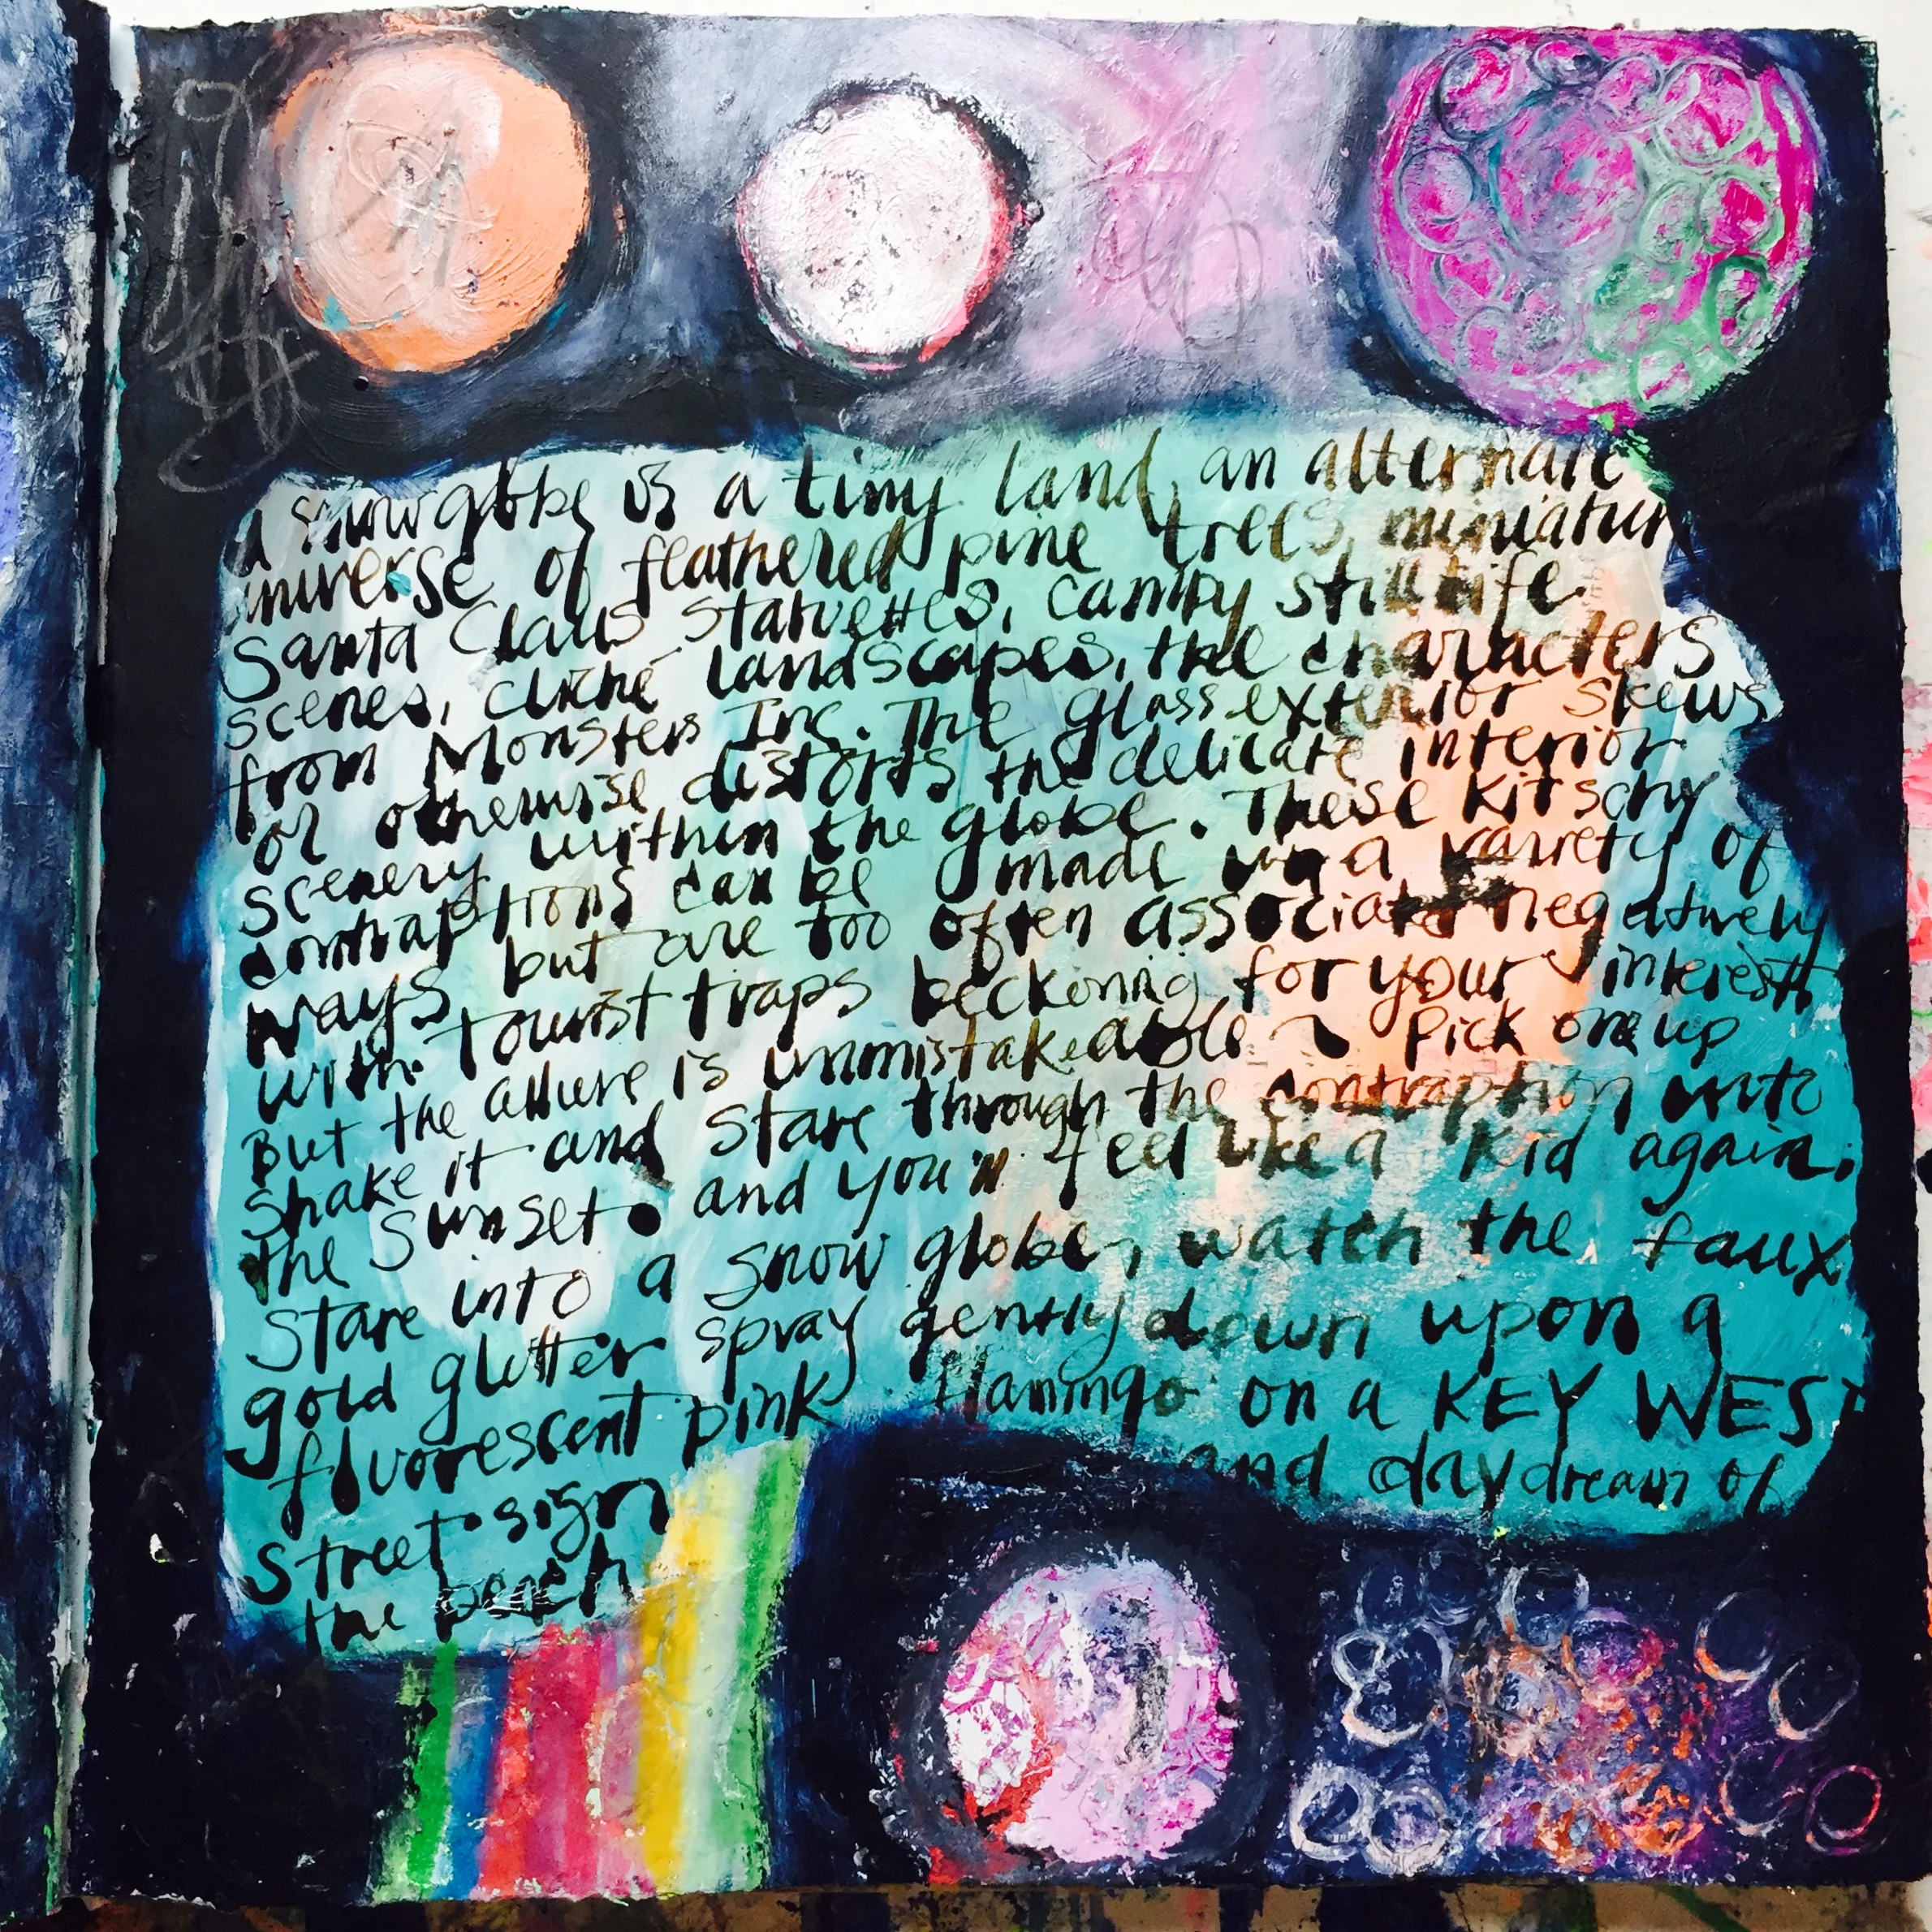 a snowglobe is a tiny land, an alternate
universe of feathered pine trees, miniature
Santa Claus statuettes, campy still life
scenes, cliché landscapes, the characters
from Monsters Inc. The glass exterior skews
or otherwise distorts the delicate interior
scenery within the globe. These kitschy
contraptions can be made in a variety of
ways but are too often associated negatively
with tourist traps beckoning for your interest.
But the allure is unmistakeable pick one up
shake it and stare through the contraption into
the sunset. and you'll feel like a kid again.
Stare into a snow globe, watch the faux
gold glitter spray gently down upon a
fluorescent pink flamingo on a KEY WEST
street sign and daydream of
the beach